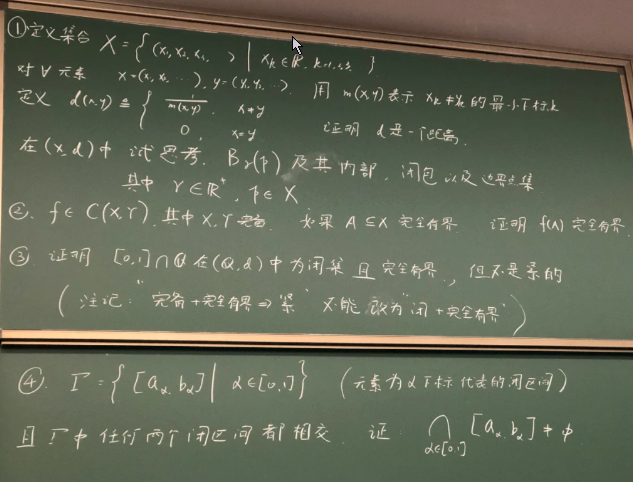 ① 定义集合 X = { (x₁, x₂, x₃, ) | x_k ∈ ℝ, k=1,2,3 }
对∀元素 x=(x₁, x₂, ...), y=(y₁, y₂, ...). 用 m(x,y) 表示 x_k ≠ y_k 的最小下标k
定义 d(x,y) ≜ { 1/m(x,y), x≠y
0, x=y 证明 d 是一个距离.
在 (X,d) 中 试思考. B_r(p) 及其内部, 闭包以及边界点集
其中 r∈ℝ⁺, p∈X
②. f∈C(X,Y). 其中 X,Y 完备. 如果 A⊆X 完全有界 证明 f(A) 完全有界.
③ 证明 [0,1]∩ℚ 在(ℚ,d) 中为闭集且完全有界, 但不是紧的
(注记: "完备+完全有界⇒紧" 不能改为 "闭+完全有界")
④. Γ = { [a_α, b_α] | α∈[0,1] } (元素为α下标代表的闭区间)
且Γ中任何两个闭区间都相交. 证: ⋂_{α∈[0,1]} [a_α, b_α] ≠ φ